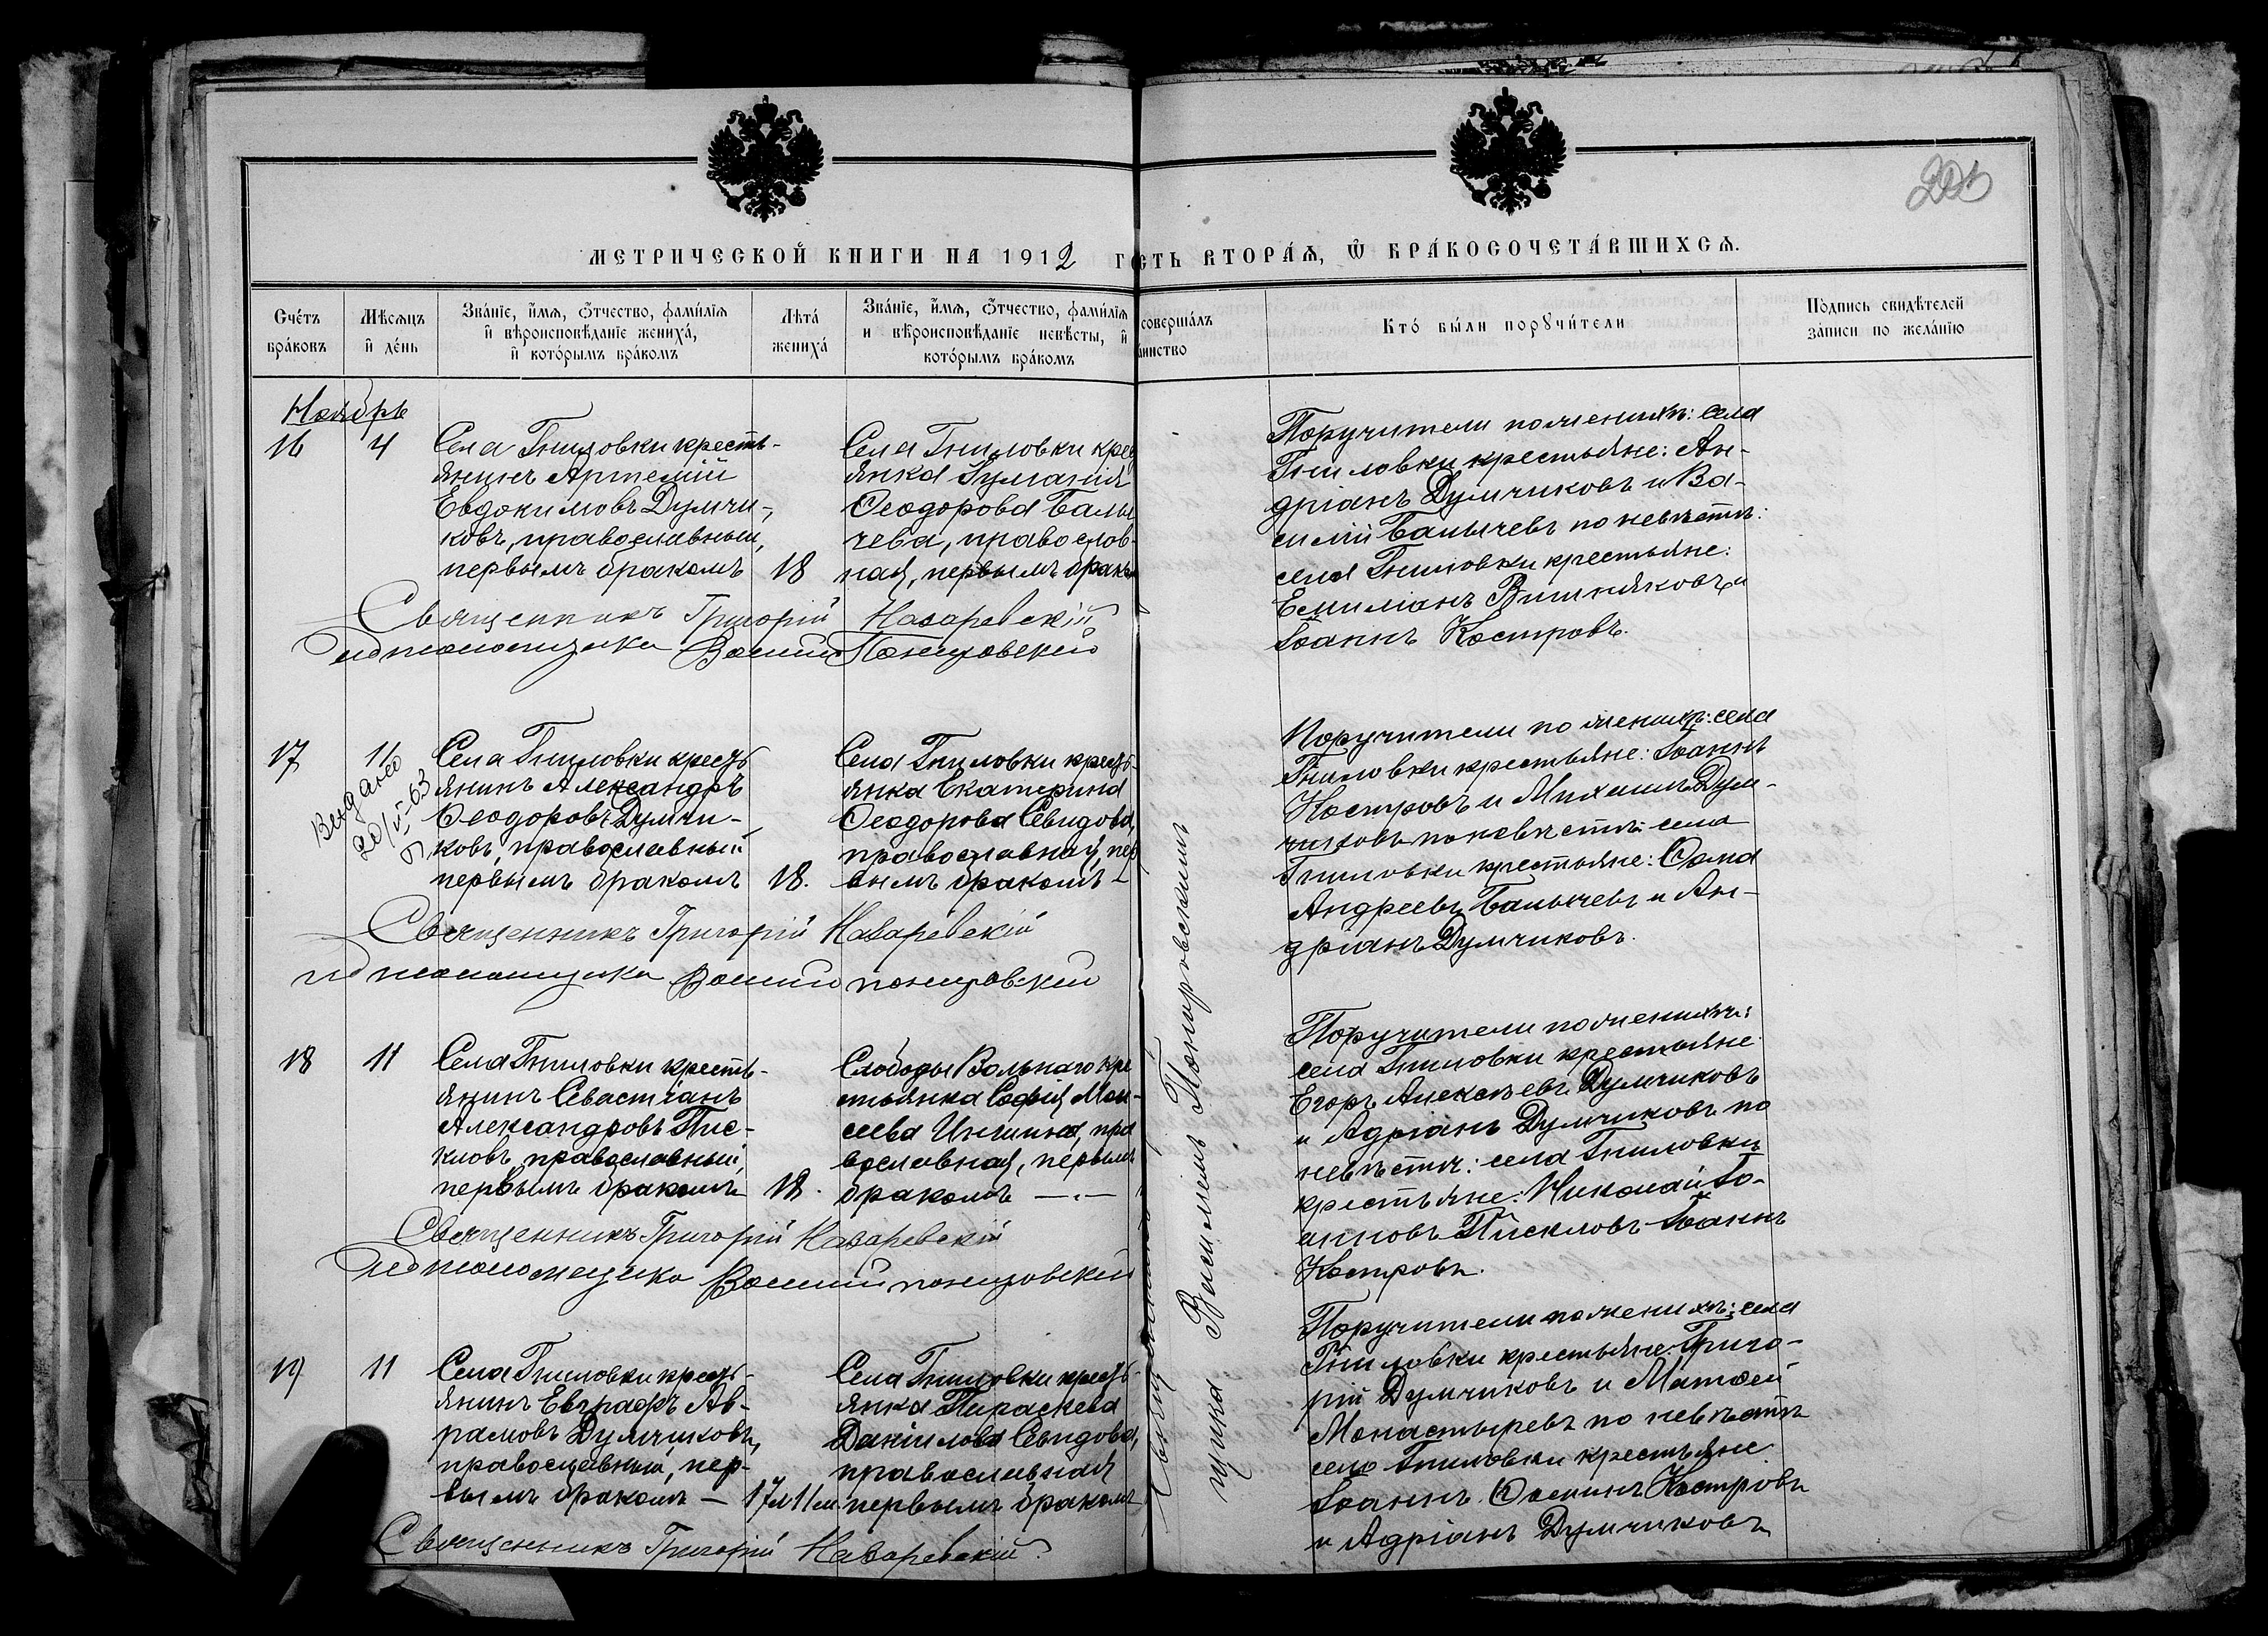 201
МЕТРИЧЕСКОЙ КНИГИ НА 1912 ГО
СТЬ ВТОРА́Я, Ѿ БРА́КОСОЧЕТА́ВШИХСЯ.
Сче́тъ
бра́ковъ
Мѣ́сяцъ
и҆ де́нь
Зва́нїе, и҆́мя, ѻ҆́тчество, фами́лїя
и҆ вѣроисповѣ́данїе жениха́,
и҆ кото́рымъ бра́комъ
Лѣта̀
жениха́
Зва́нїе, и҆́мя, ѻ҆́тчество, фами́лїя
и вѣроисповѣ́данїе невѣ́сты, и҆
кото́рымъ бра́комъ
соверша́лъ
аинство
Кто́ бы́ли порꙋчи́тели
По́дпись свидѣ́телей
за́писи по жела́нїю
Ноябрь
16
4
Села Гниловки кресть-
янинъ Артемій
Евдокимовъ Думчи-
ковъ, православный,
первымъ бракомъ
18
Села Гниловки крес
янка
Ѳеодорова Балы
чева, православ-
ная, первымъ брако
Поручители по женихѣ: села
Гниловки крестьяне: Ан-
дріанъ Думчиковъ и Ва-
силій Балычевъ по невѣстѣ:
села Гниловки крестьяне:
Емиліанъ Вишняковъ и
Іоаннъ Костровъ.
Священникъ Григорій Назаревскій
Псаломщикъ Василій Понировскій
17
11
Выдано
20/V-63
Села Гниловки кресть
янинъ Александръ
Ѳеодоровъ Думчи-
ковъ, православный
первымъ бракомъ
18.
Села Гниловки кресть-
янка Екатерина
Ѳеодорова Севидова,
православная, пер
вымъ бракомъ
Поручители по женихѣ: села
Гниловки крестьяне: Іоаннъ
Костровъ и Михаилъ Дум-
чиковъ по невѣстѣ села
Гниловки крестьяне: Ѳома
Андреевъ Балычевъ и Ан-
дріанъ Думчиковъ.
Священникъ Григорій Назаревскій
Псаломщикъ Василій Понировскій
18
11
Села Гниловки кресть-
янинъ Севастіанъ
Александровъ Пис-
кловъ, православный,
первымъ бракомъ
18.
Слободы Вольнаго кре
стьянка Софія Мои-
сеева пра
вославная, первымъ
бракомъ
Поручители по женихѣ:
села Гниловки крестьяне
Егоръ Алексѣевъ Думчиковъ
и Адріанъ Думчиковъ по
невѣстѣ: села Гниловки
крестьяне: Николай Іо-
анновъ Пискловъ Іоаннъ
Костровъ.
Священникъ Григорій Назаревскій
Псаломщикъ Василій Понировскій
19
11
Села Гниловки кресть-
янинъ Евграфъ Ав-
рамовъ Думчиковъ,
православный, пер-
вымъ бракомъ —
17 л 11 м
Села Гниловки кресть-
янка Параскева
Даніилова Севидова,
православная
первымъ бракомъ
Поручители по женихѣ: села
Гниловки крестьяне Григо-
рій Думчиковъ и Матѳей
Монастыревъ по невѣстѣ
село Гниловки крестьяне
Іоаннъ Ѳоминъ Костровъ
и Адріанъ Думчиковъ
Священникъ Григорій Назаревскій.
Василіемъ Понировскимъ